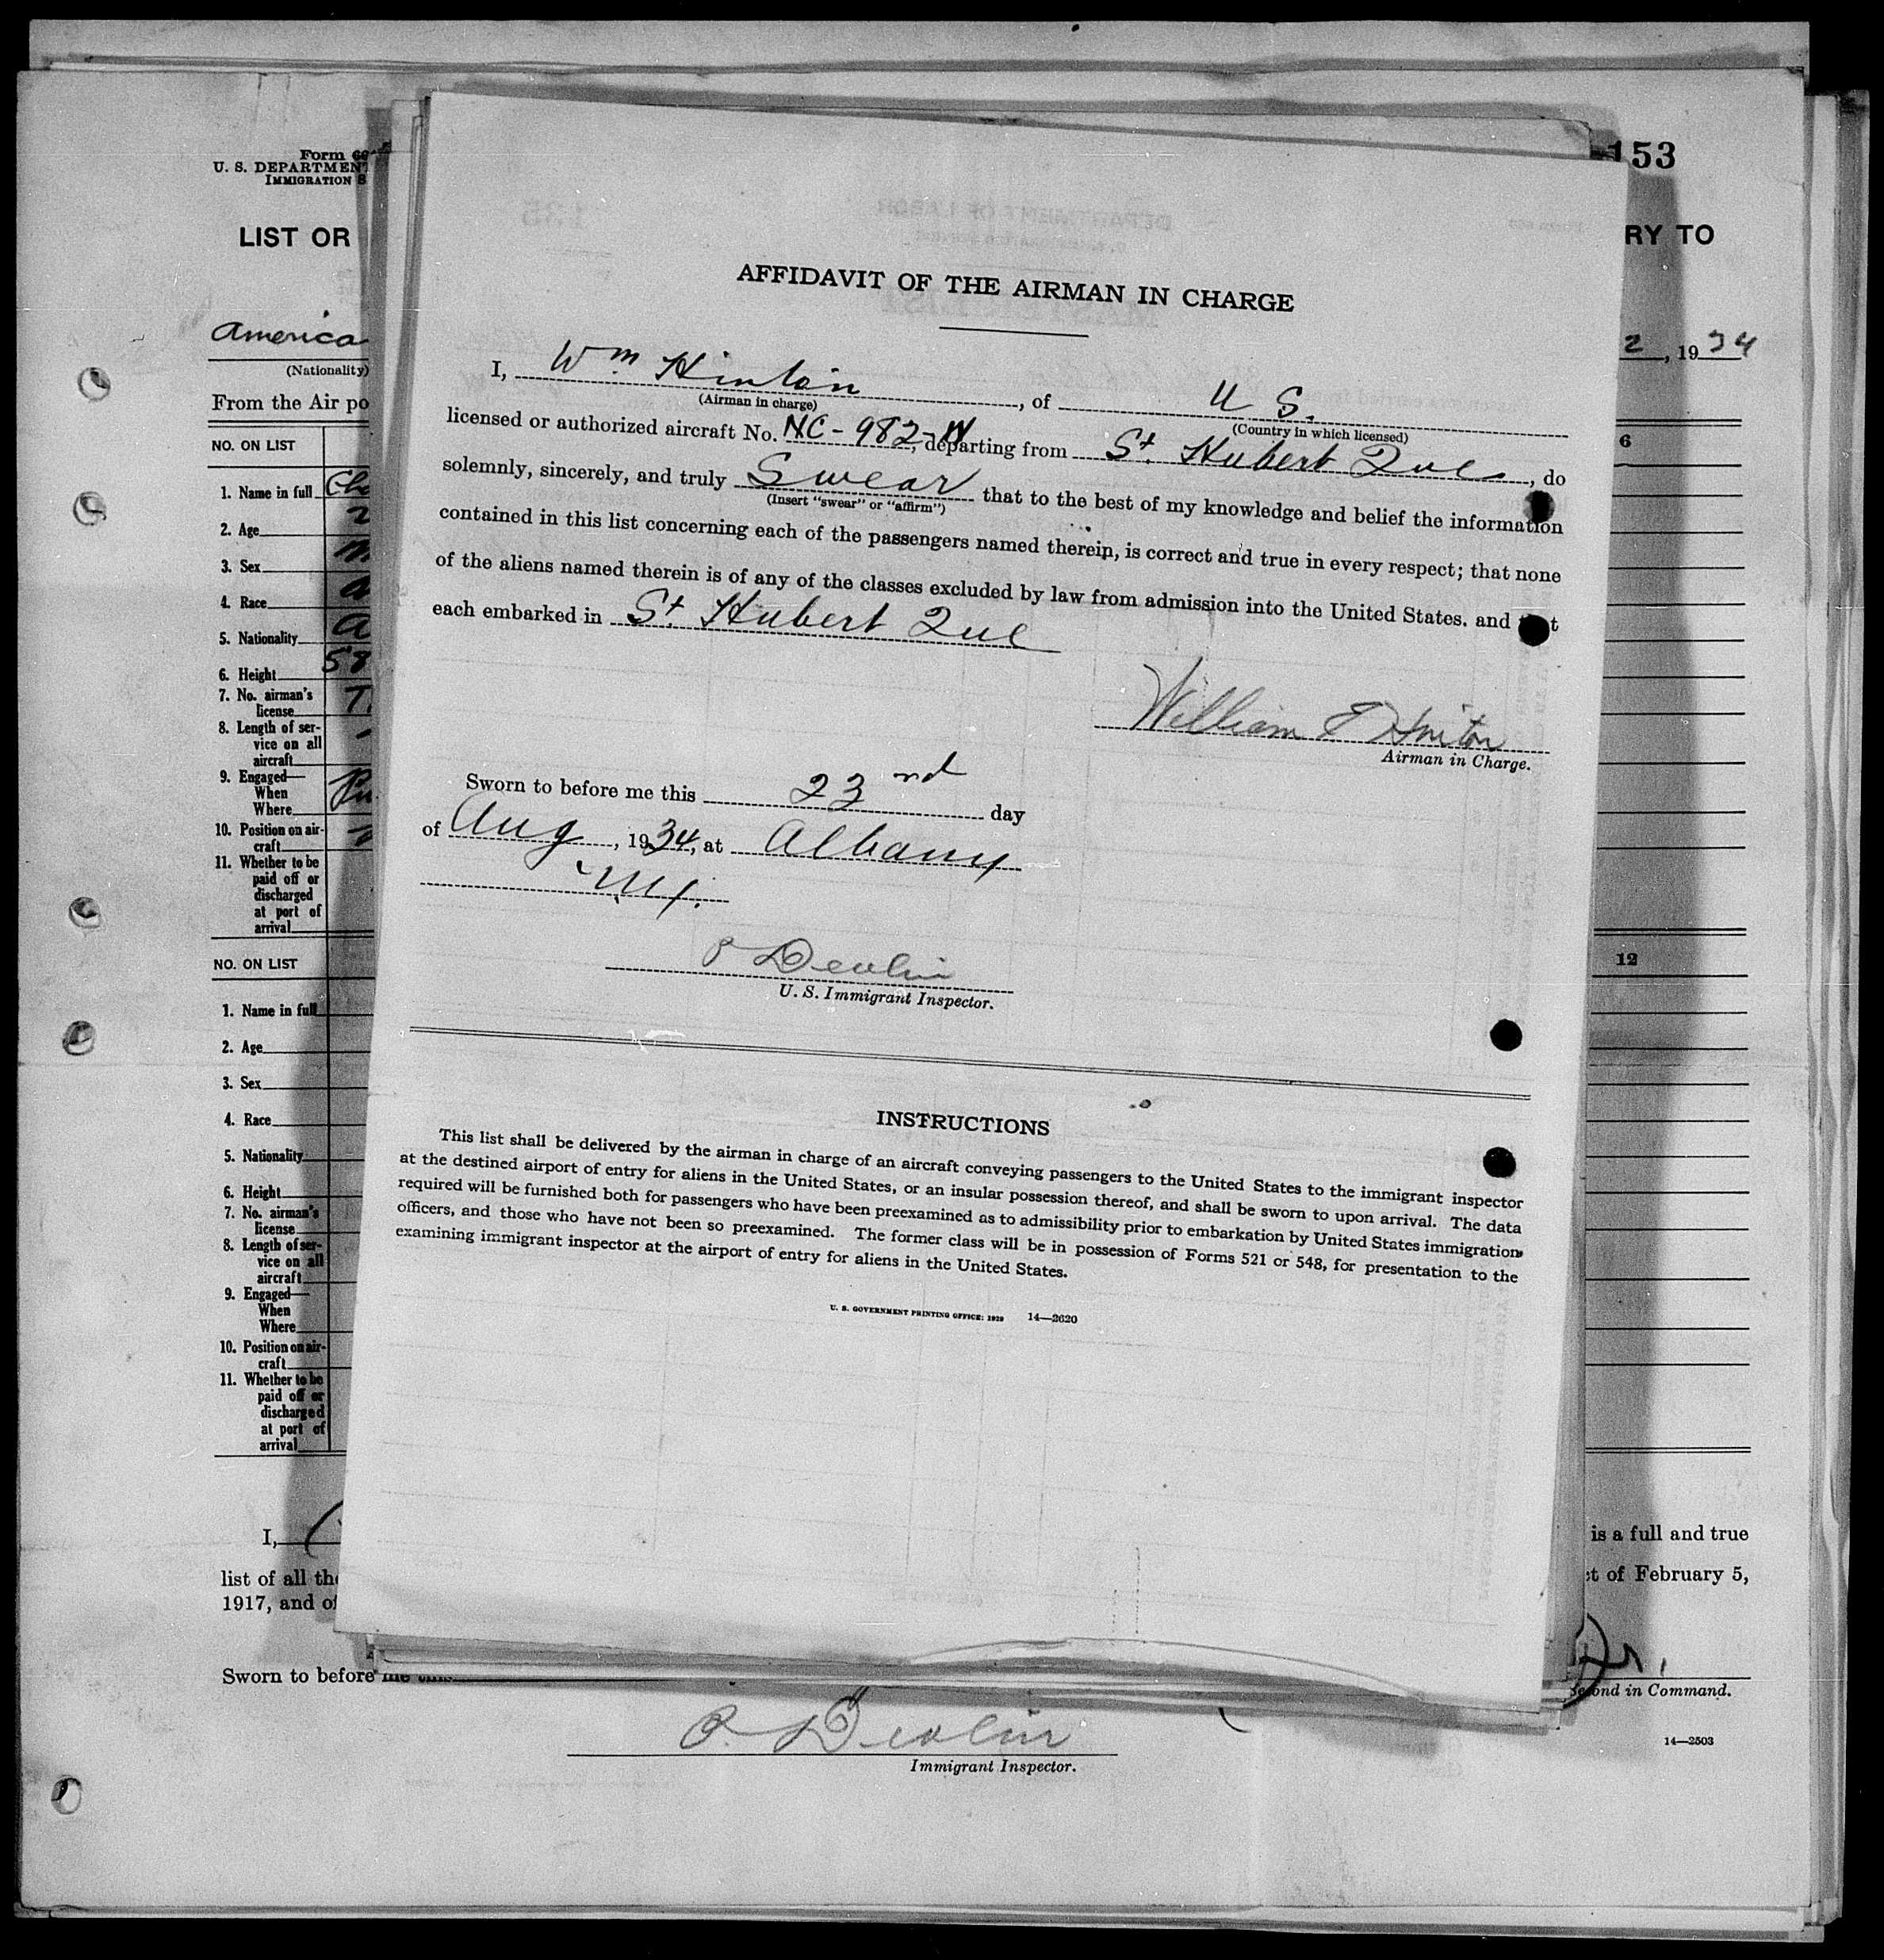 Form
U. S. DEPARTMENT
IMMIGRATION S
153
LIST OR
RY TO
America
2, 1934
(Nationality)
From the Air po
AFFIDAVIT OF THE AIRMAN IN CHARGE
I, Wm Hinton, of U S.
(Airman in charge) (Country in which licensed)
licensed or authorized aircraft No. NC-982-W, departing from St. Hubert Que, do
solemnly, sincerely, and truly Swear that to the best of my knowledge and belief the information
(Insert "swear" or "affirm")
contained in this list concerning each of the passengers named therein, is correct and true in every respect; that none
of the aliens named therein is of any of the classes excluded by law from admission into the United States. and that
each embarked in St. Hubert Que
William T Hinton
Airman in Charge.
Sworn to before me this 23nd day
of Aug, 1934, at Albany
N.Y.
P Devlin
U. S. Immigrant Inspector.
INSTRUCTIONS
This list shall be delivered by the airman in charge of an aircraft conveying passengers to the United States to the immigrant inspector
at the destined airport of entry for aliens in the United States, or an insular possession thereof, and shall be sworn to upon arrival. The data
required will be furnished both for passengers who have been preexamined as to admissibility prior to embarkation by United States immigration
officers, and those who have not been so preexamined. The former class will be in possession of Forms 521 or 548, for presentation to the
examining immigrant inspector at the airport of entry for aliens in the United States.
U. S. GOVERNMENT PRINTING OFFICE: 1929 14—2620
NO. ON LIST
6
1. Name in full
2. Age
3. Sex
4. Race
5. Nationality
6. Height
7. No. airman's
license
8. Length of ser-
vice on all
aircraft
9. Engaged—
When
Where
10. Position on air-
craft
11. Whether to be
paid off or
discharged
at port of
arrival
NO. ON LIST
12
1. Name in full
2. Age
3. Sex
4. Race
5. Nationality
6. Height
7. No. airman's
license
8. Length of ser-
vice on all
aircraft
9. Engaged—
When
Where
10. Position on air-
craft
11. Whether to be
paid off or
discharged
at port of
arrival
I,
is a full and true
list of all the
ct of February 5,
1917, and of
Sworn to before me this
Second in Command.
P. Devlin
Immigrant Inspector.
14—2503